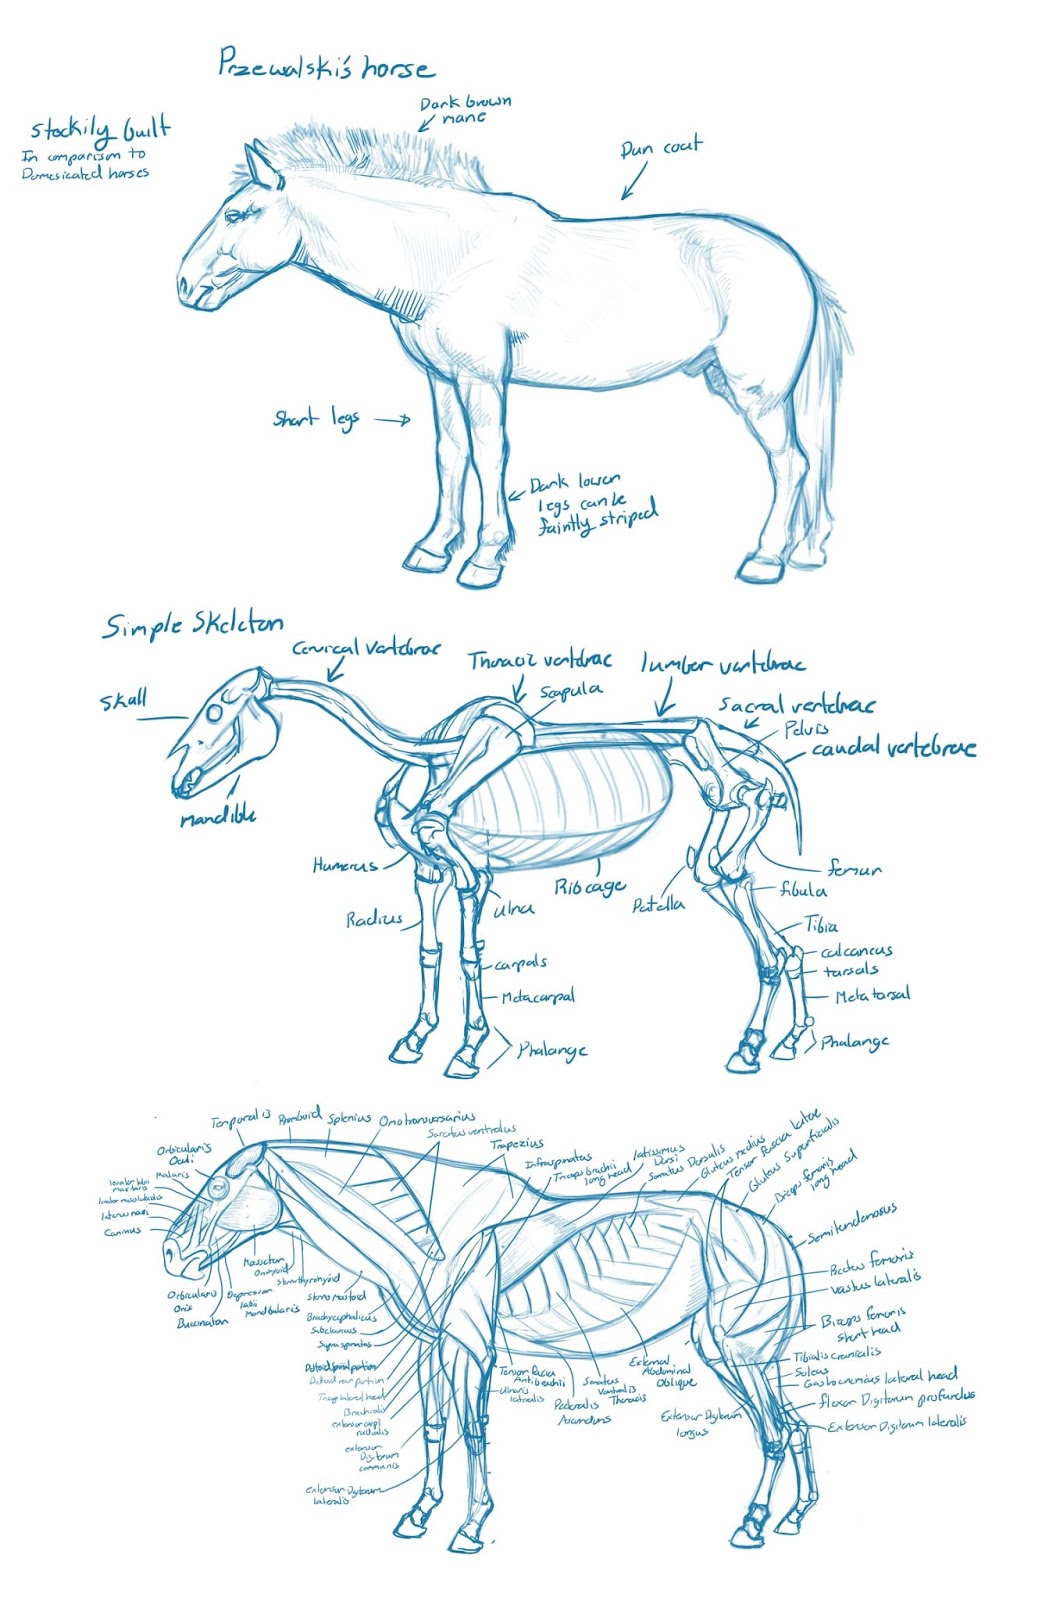 Przewalski's horse
Stockily built
In comparison to
Domesicated horses
Dark brown
mane
Dun coat
Short legs
Dark lower
legs can be
faintly striped
Simple Skeleton
Cervical vertebrae
Thoracic vertebrae
Scapula
lumber vertebrae
Sacral vertebrae
Pelvis
caudal vertebrae
Skull
Mandible
Humerus
Radius
Ulna
Rib cage
Patella
femur
fibula
Tibia
calcaneus
tarsals
Metatarsal
Phalange
carpals
Metacarpal
Phalange
Temporalis
Rhomboid
Splenius
Omotransversarius
Seratus ventralus
Trapezius
Infraspinatus
Triceps brachii
long head
latissimus
Dorsi
Seratus Dorsalis
Gluteus medius
Tensor fascia latae
Gluteus Superficialis
Biceps femoris
long head
Semitendenosus
Rectus femoris
vastus lateralis
Biceps femoris
short head
Tibialis cranialis
Soleus
Gastrocnemius lateral head
flexor Digitorum profundus
Extensor Digitorum lateralis
Orbicularis
Oculi
Malaris
Caninus
Masseter
Omohyoid
Sternothyrohyoid
Sterno mastoid
Orbicularis
Oris
Buccinator
Depressor
labii
Mandibularis
Brachycephalicus
Subclavius
Supraspinatus
Deltoid spinal portion
Deltoid rear portion
Tricep lateral head
Brachialis
extensor carpi
radialis
extensor
Digitorum
communis
extensor Digitorum
lateralis
Tensor fascia
Antibrachii
Ulnaris
lateralis
Pectoralis
Ascendens
Seratus
Ventralis
Thoracis
External
Abdominal
Oblique
Extensor Digitorum
longus